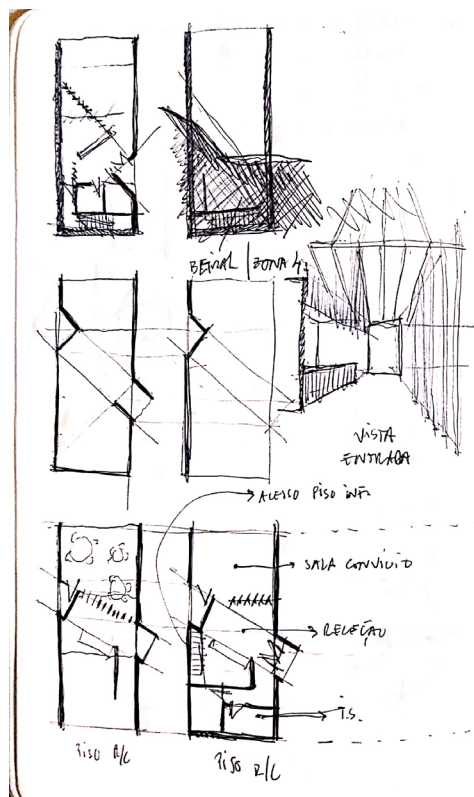 BEIRAL / ZONA 4
VISTA
ENTRADA
ACESSO PISO INF.
SALA CONVÍVIO
RECEÇÃO
I.S.
PISO R/C
PISO R/C